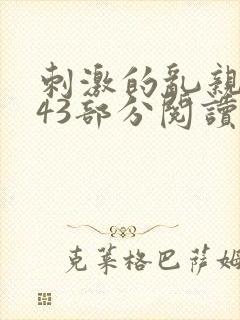 刺激的亂親
43部分閱讀
克莱格巴萨姆